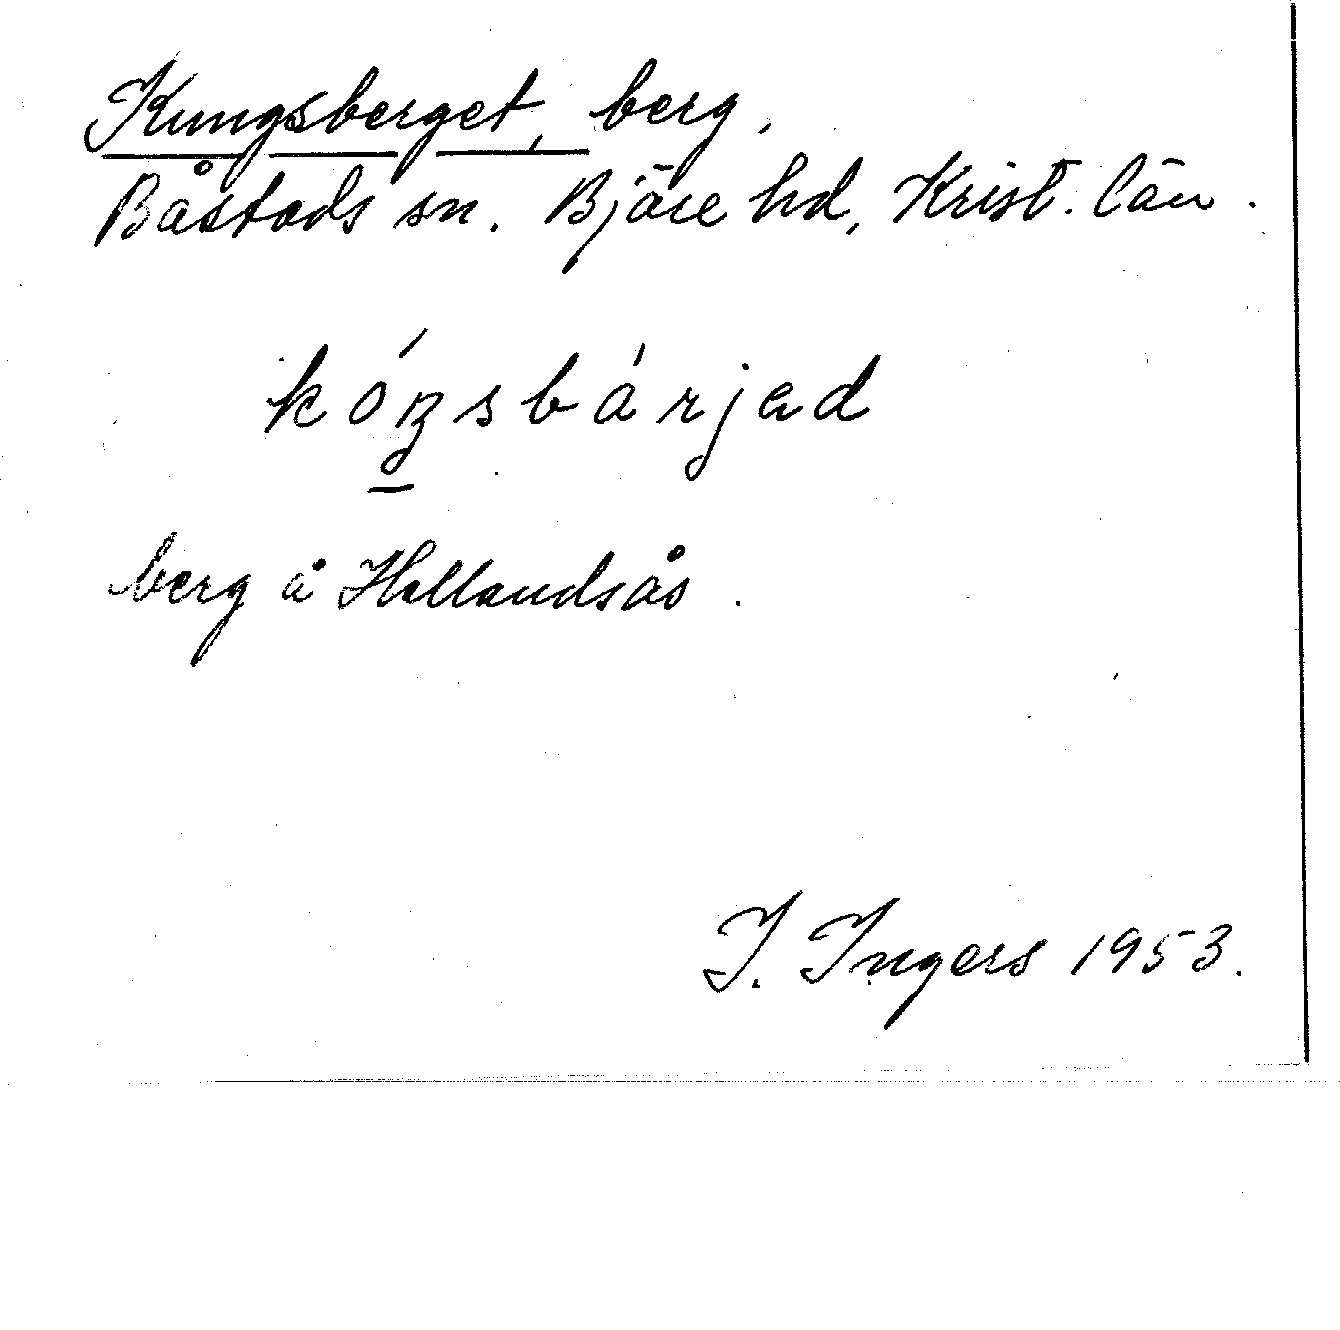 Kungsberget, berg.
Båstads sn. Bjäre hd, Krist. län.
kóŋsbárjad
berg å Hallandsås.
I. Ingers 1953.